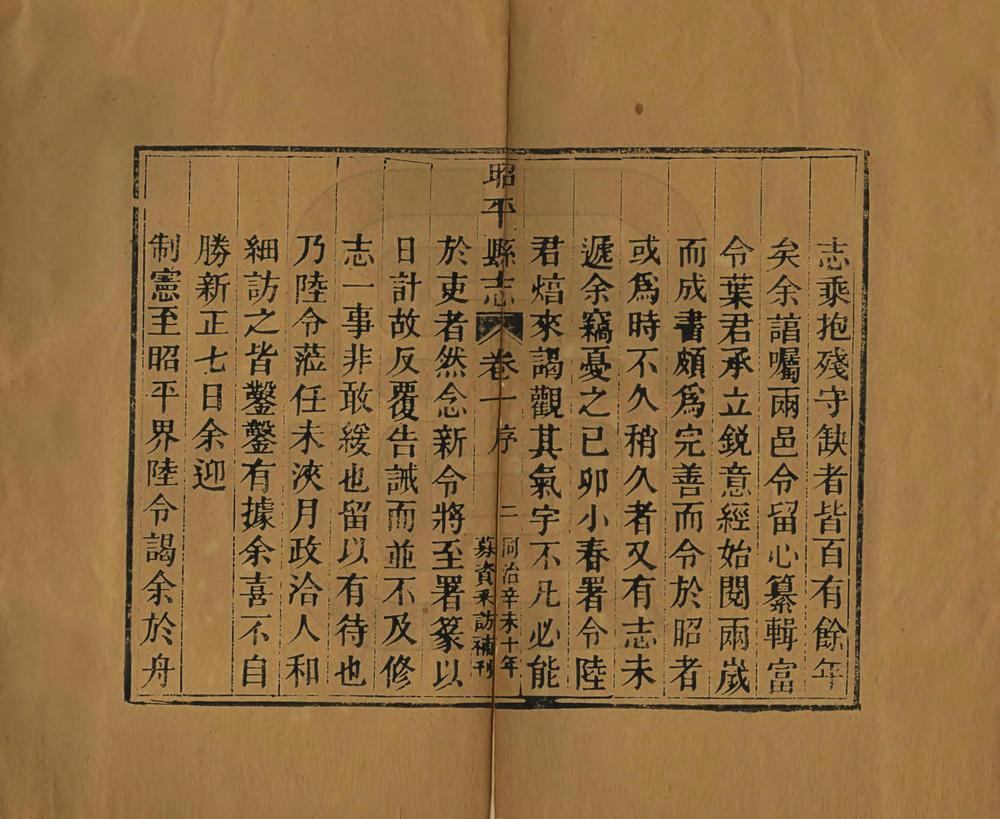 志乘抱殘守缺者皆百有餘年
矣余諳囑兩邑令留心纂輯富
令葉君承立銳意經始閱兩歲
而成書頗爲完善而令於昭者
或爲時不久稍久者又有志未
遞余竊憂之已卯小春署令陸
君焙來謁觀其氣宇不凡必能
昭平縣志 卷一 序 二 同治辛未十年
募資采訪補刊
於吏者然念新令將至署篆以
日計故反覆告誡而並不及修
志一事非敢緩也留以有待也
乃陸令蒞任未浹月政洽人和
細訪之皆鑿鑿有據余喜不自
勝新正七日余迎
制憲至昭平界陸令謁余於舟